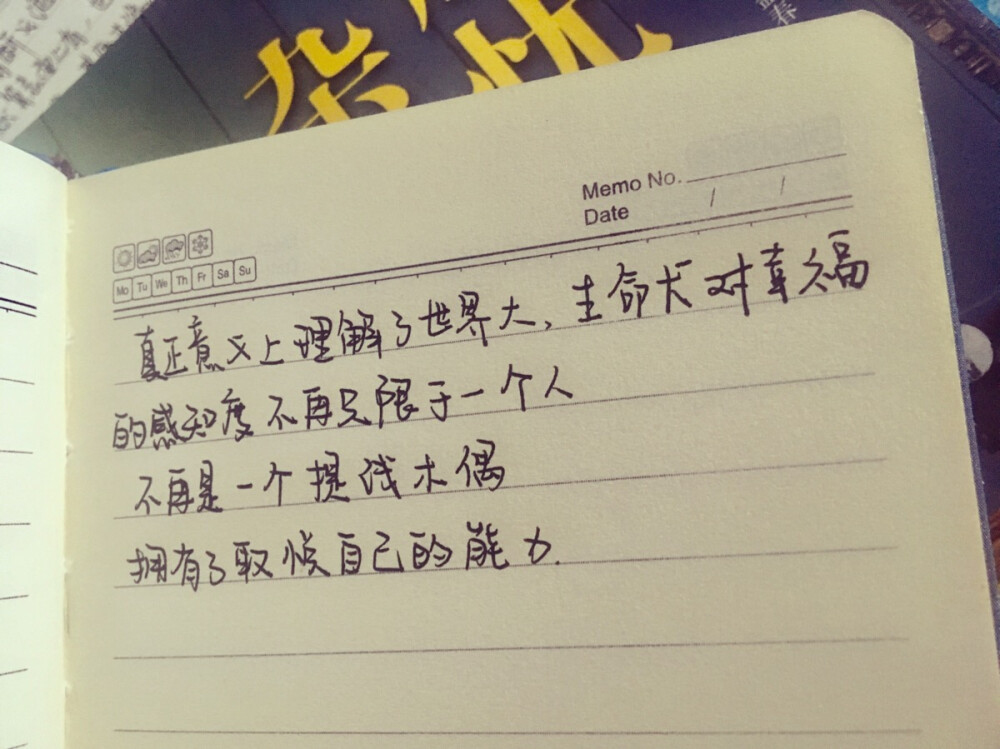 解忧
杂
Memo No.
Date / /
Mo Tu We Th Fr Sa Su
真正意义上理解了世界大、生命犬对幸福
的感知度不再只限于一个人
不再是一个提线木偶
拥有了取悦自己的能力.